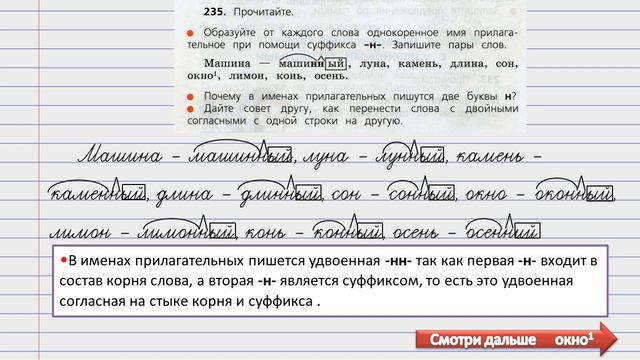 235. Прочитайте.
● Образуйте от каждого слова однокоренное имя прилага-
тельное при помощи суффикса -н-. Запишите пары слов.
Машина — машинный, луна, камень, длина, сон,
окно¹, лимон, конь, осень.
● Почему в именах прилагательных пишутся две буквы н?
● Дайте совет другу, как перенести слова с двойными
согласными с одной строки на другую.
Машина – машинный, луна – лунный, камень –
каменный, длина – длинный, сон – сонный, окно – оконный,
лимон – лимонный, конь – конный, осень – осенний
•В именах прилагательных пишется удвоенная -нн- так как первая -н- входит в
состав корня слова, а вторая -н- является суффиксом, то есть это удвоенная
согласная на стыке корня и суффикса .
Смотри дальше окно¹